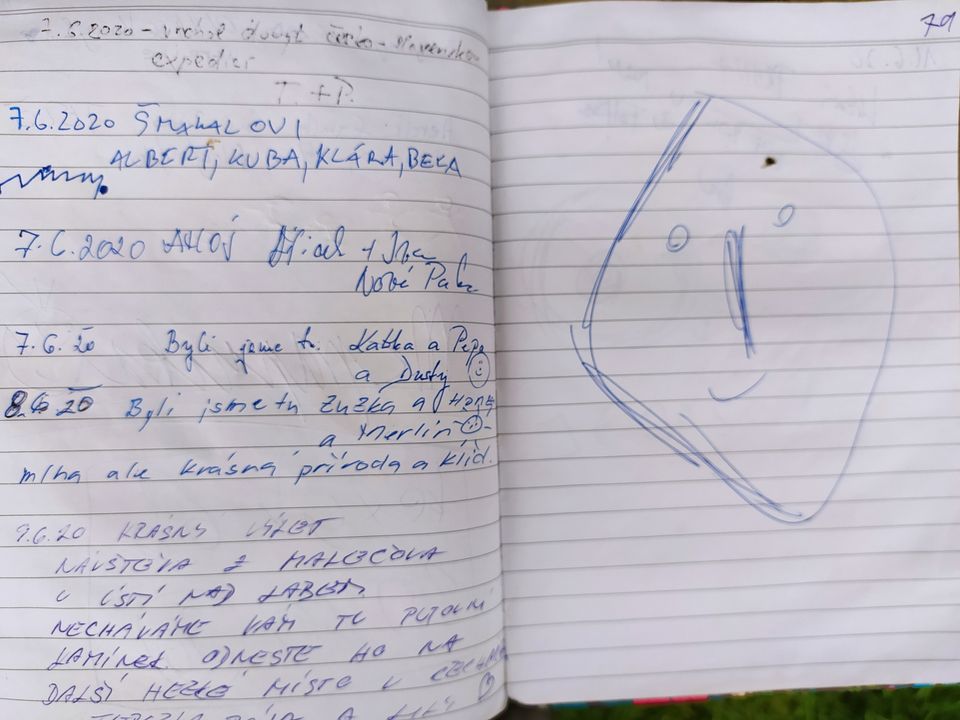 7.6.2020 - vrchol dobyt česko-slovenskou
expedicí
T. + P.
7.6.2020 ŠMAKALOVI
ALBERT, KUBA, KLÁRA, BEKA
7.6.2020 AHOJ
Nové Paka
7.6.20 Byli jsme tu. Katka a Pepa
a Dusty
8.6.20 Byli jsme tu Zuzka a Honza
a Merlin
mlha ale krásná příroda a klid.
9.6.20 KRÁSNÝ VÝLET
NÁVŠTĚVA Z MALEČOVA
U ÚSTÍ NAD LABEM.
NECHÁVÁME VÁM TU PUTOVNÍ
KAMÍNEK. ODNESTE HO NA
DALŠÍ HEZKÉ MÍSTO V ČECHÁCH
79